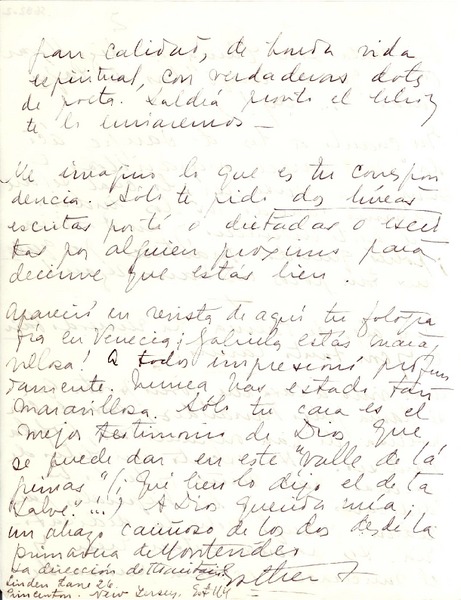 gran calidad, de honda vida
espiritual, con verdaderas dotes
de poeta. Saldrá pronto el libro y
te lo enviaremos —
Me imagino lo que es tu correspon
dencia. Sólo te pido dos líneas
escritas por tí o dictadas o escri
tas por alguien próximo para
decirme que estás bien.
Apareció en revista de aquí tu fotogra
fía en Venecia; Gabriela estás mara
villosa! A todos impresionó profun
damente. Nunca has estado tan
maravillosa. Sólo tu cara es el
mejor testimonio de Dios que
se puede dar en este "valle de lá
grimas" (¡Qué bien lo dijo el de la
"Salve"...!) A Dios querida mía,
un abrazo cariñoso de los dos desde la
primavera de Montevideo
Esther
La dirección de
Linden Lane 26
Princeton. New Jersey.